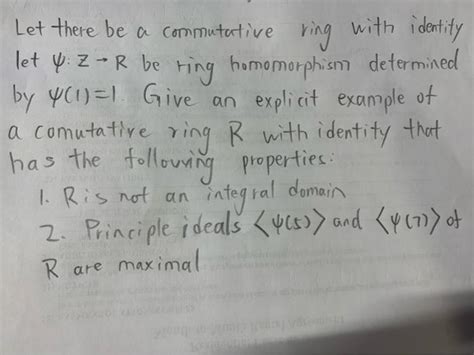 Let there be a commutative ring with identity
let ψ: Z → R be ring homomorphism determined
by ψ(1)=1. Give an explicit example of
a comutative ring R with identity that
has the following properties:
1. R is not an integral domain
2. Principle ideals ⟨ψ(5)⟩ and ⟨ψ(7)⟩ of
R are maximal